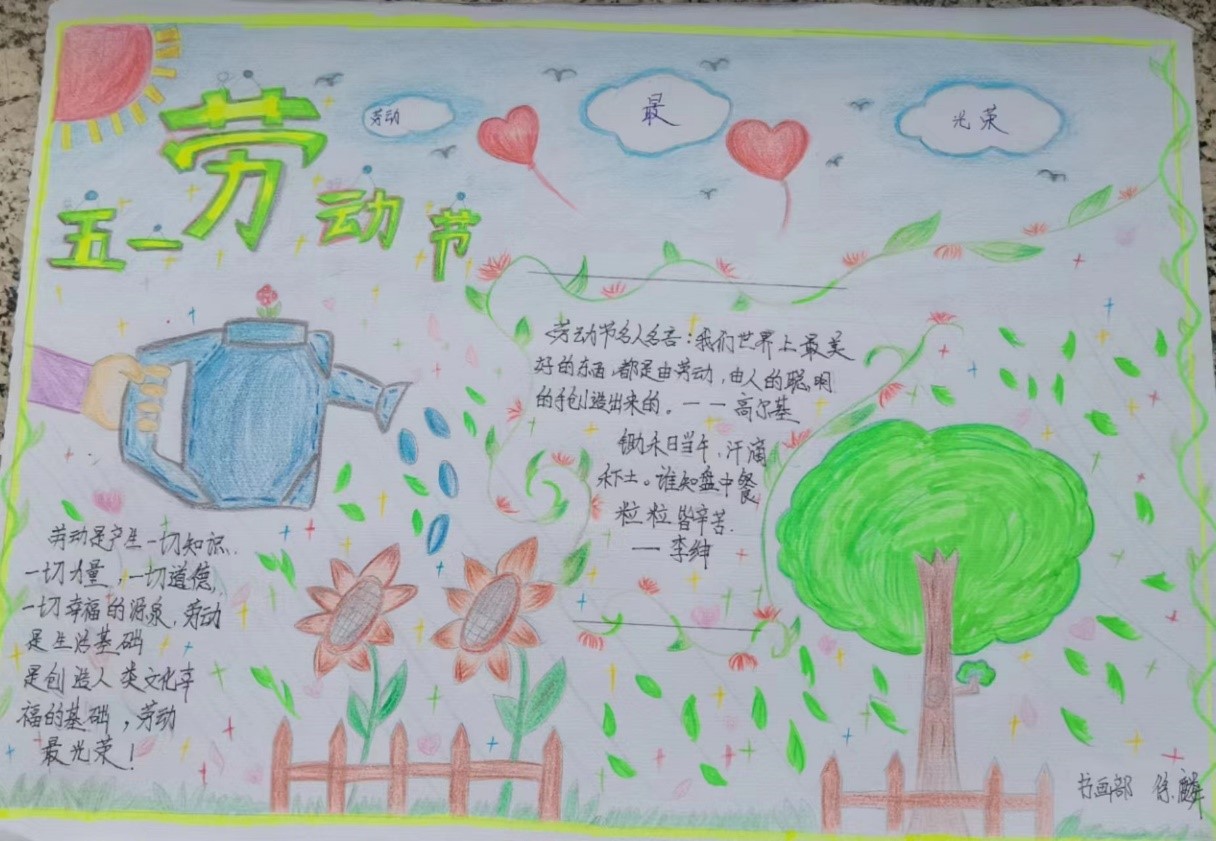 五一劳动节
劳动
最
光荣
劳动节名人名言：我们世界上最美
好的东西，都是由劳动，由人的聪明
的手创造出来的。——高尔基
锄禾日当午，汗滴
禾下土。谁知盘中餐
粒粒皆辛苦.
—李绅
劳动是产生一切知识.
一切力量，一切道德,
一切幸福的源泉,劳动
是生活基础
是创造人类文化幸
福的基础，劳动
最光荣!
书画部 徐麟